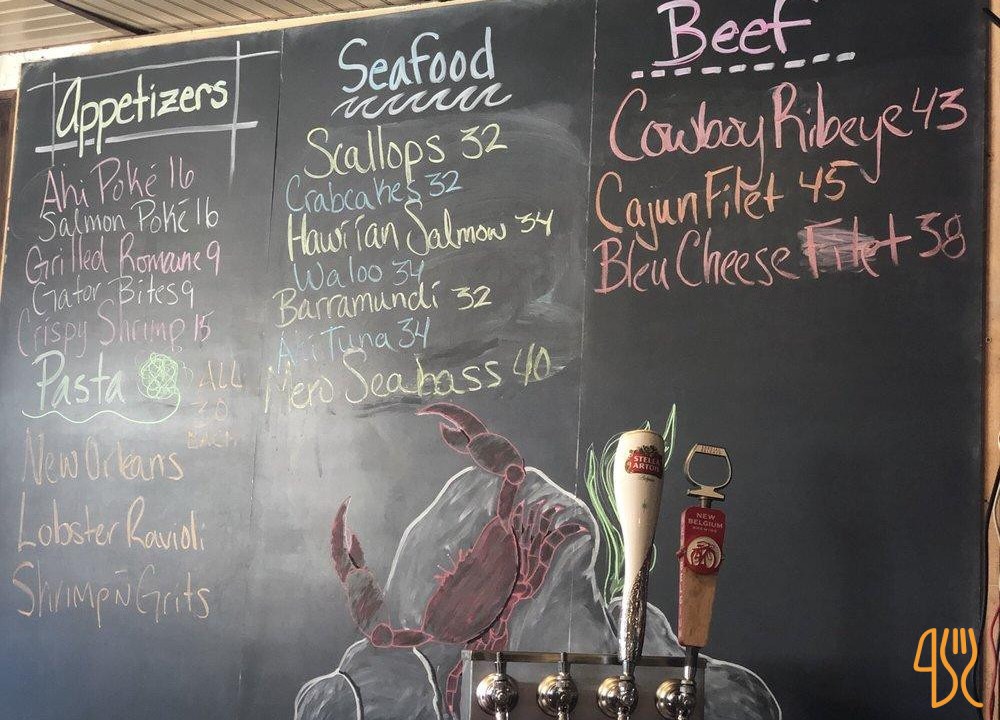 Appetizers
Ahi Poké 16
Salmon Poké 16
Grilled Romane 9
Gator Bites 9
Crispy Shrimp 15
Pasta
ALL
30
EACH
New Orleans
Lobster Ravioli
Shrimp N Grits
Seafood
Scallops 32
Crabcakes 32
Hawiian Salmon 34
Waloo 34
Barramundi 32
Ahi Tuna 34
Mero Seabass 40
Beef
Cowboy Ribeye 43
Cajun Filet 45
Bleu Cheese Filet 38
STELLA
ARTOIS
NEW
BELGIUM
BREWING